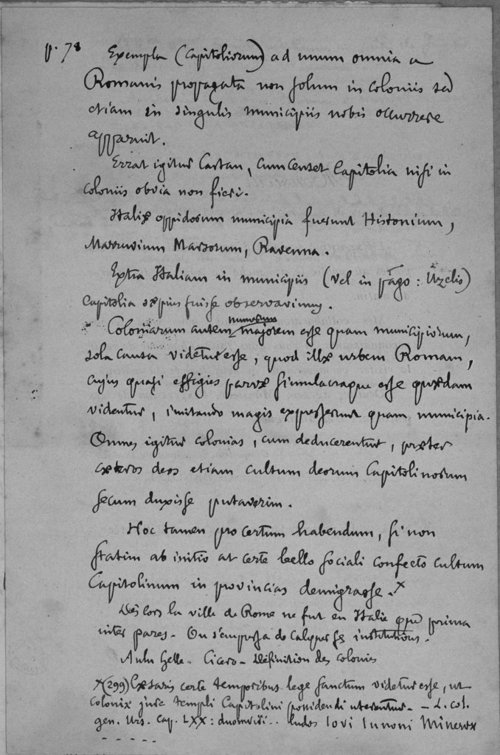 p. 78 Exempla (Capitoliorum) ad unum omnia a
Romanis propagata non solum in coloniis sed
etiam in singulis municipiis nobis occurrere
apparuit.
Errat igitur Castan, cum censet Capitolia nisi in
coloniis obvia non fieri.
Italiæ oppidorum municipia fuerunt Histonium,
Marruvium Marsorum, Ravenna.
Extra Italiam in municipiis (vel in pago : Uzelis)
Capitolia sæpius fuisse observavimus.
numerum
Coloniarum autem majorem esse quam municipiorum,
sola causa videtur esse, quod illæ urbem Romam,
cujus quasi effigies parvæ simulacraque esse quædam
videntur, imitando magis expresserunt quam municipia.
Omnes igitur colonias, cum deducerentur, præter
cæteros deos etiam cultum deorum Capitolinorum
secum duxisse putaverim.
Hoc tamen pro certum habendum, si non
statim ab initio at certe bello sociali confecto cultum
Capitolinum in provincias demigrasse.x
Dès lors la ville de Rome ne fut en Italie que prima
inter pares. On s'empressa de calquer ses institutions.
Aulu Gelle. Cicero. Définition des colonies
x(299) Cæsaris certe temporibus lege sanctum videtur esse, ut
coloniæ jure templi Capitolini possidendi uterentur. - L. col.
gen. Urs. cap. LXX: duoviri.. ludos Iovi Iunoni Minervæ
- - - - -